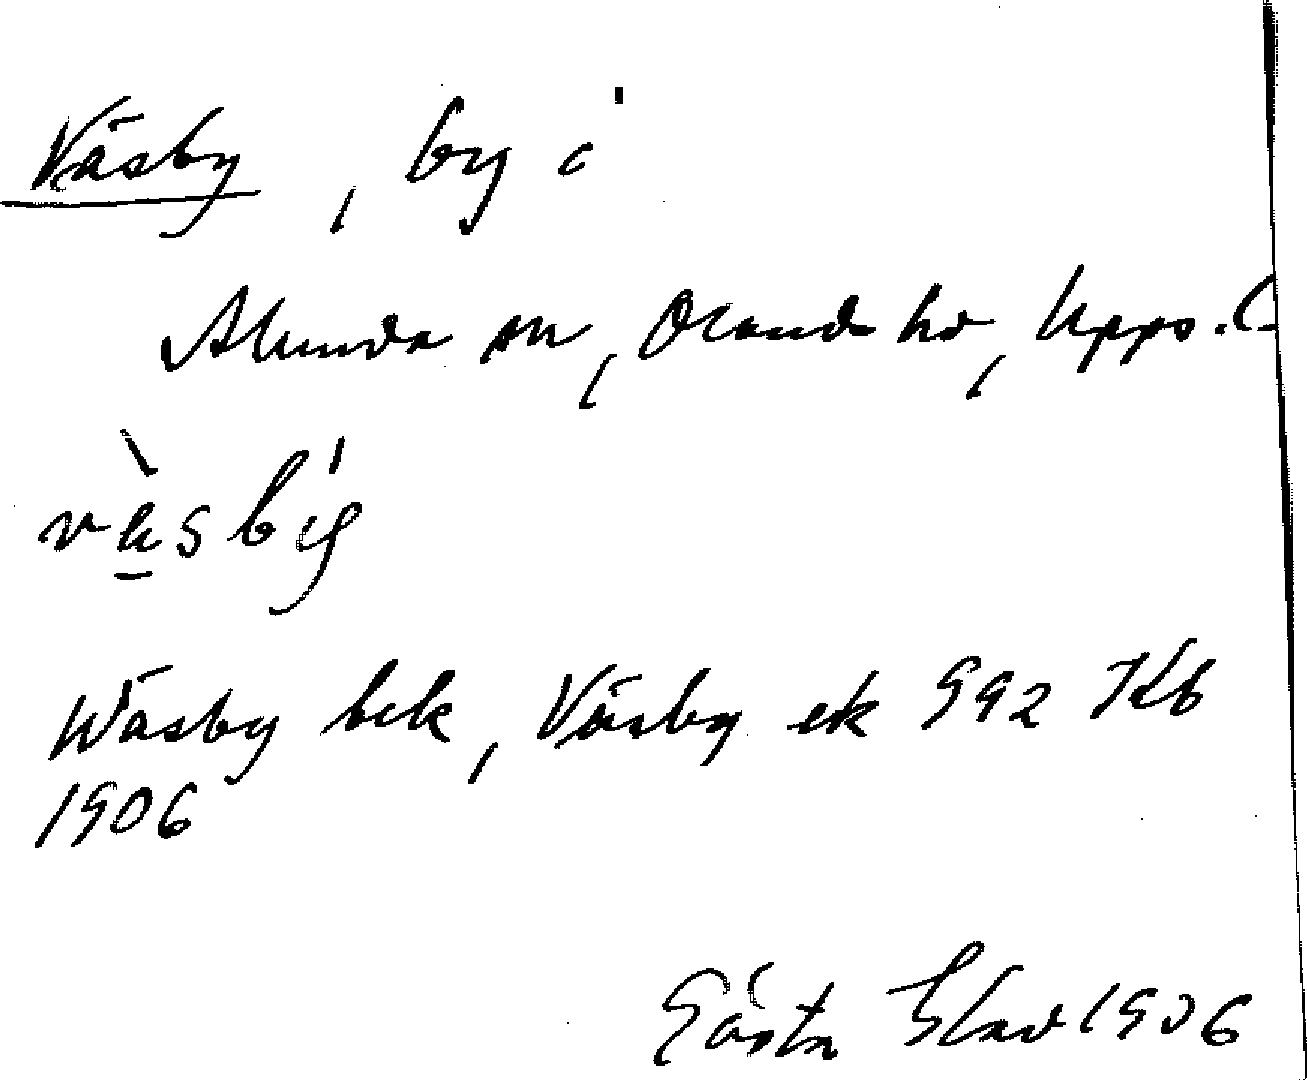 Väsby, by i
Alunda sn, Olands hd, Upps. l
Wäsby bek, Väsby ek 992 Kb
1906
Gösta Blad 1906